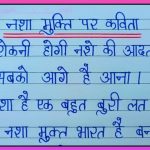 नशा मुक्ति पर कविता
रोकनी होगी नशे की आदत
सबको आगे है आना।
नशा है एक बहुत बुरी लत
नशा मुक्त भारत है